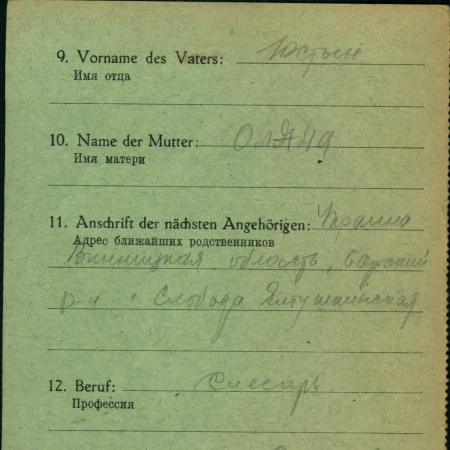 9. Vorname des Vaters: Юстын
Имя отца
10. Name der Mutter: Оляна
Имя матери
11. Anschrift der nächsten Angehörigen: Украина
Адрес ближайших родственников
Винницкая область, Барский
р-н с. Слобода Ялтушкинская
12. Beruf: Слесарь
Профессия